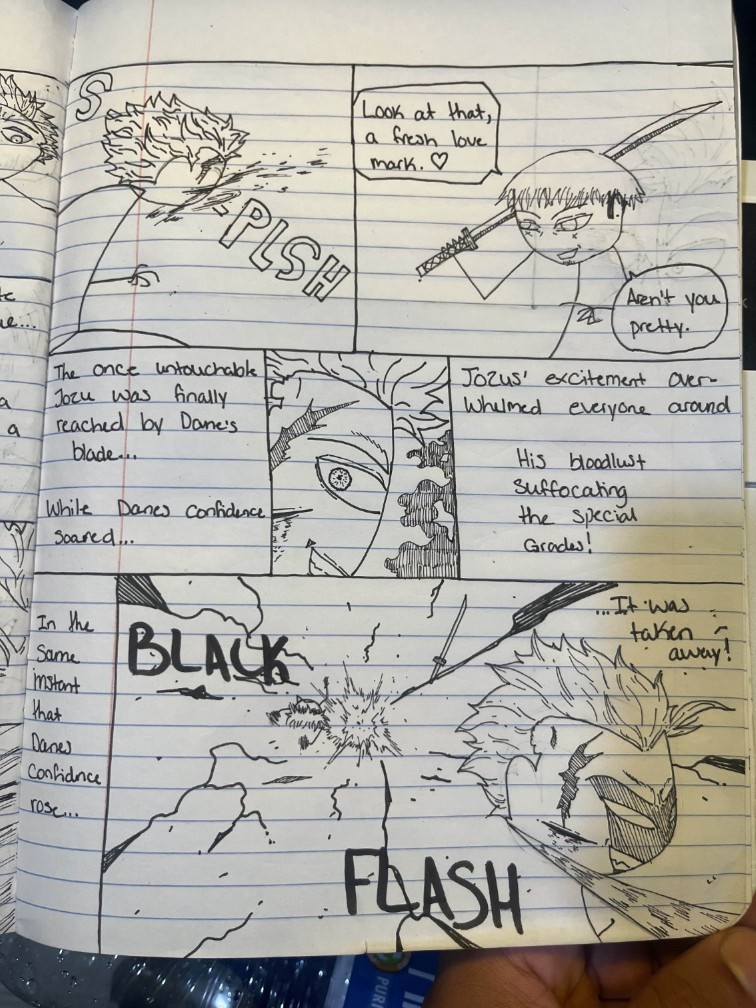 S
-PLSH
Look at that,
a fresh love
mark. ♡
Aren't you
pretty.
The once untouchable
Jozu was finally
reached by Dane's
blade...
While Danes confidence
soared...
Jozus' excitement over-
whelmed everyone around
His bloodlust
suffocating
the special
Grades!
In the
same
instant
that
Danes
confidnce
rose...
BLACK
FLASH
...It was
taken
away!